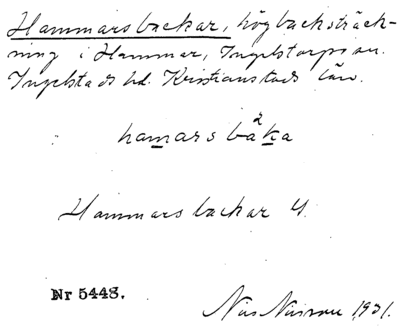 Hammarsbackar, högbackssträck-
ning i Hammar, Ingelstorps sn.
Ingelstads hd. Kristianstads län.
hamarsbaka
2
Hammarsbackar
Nr 5448.
Nils Nilsson 1931.